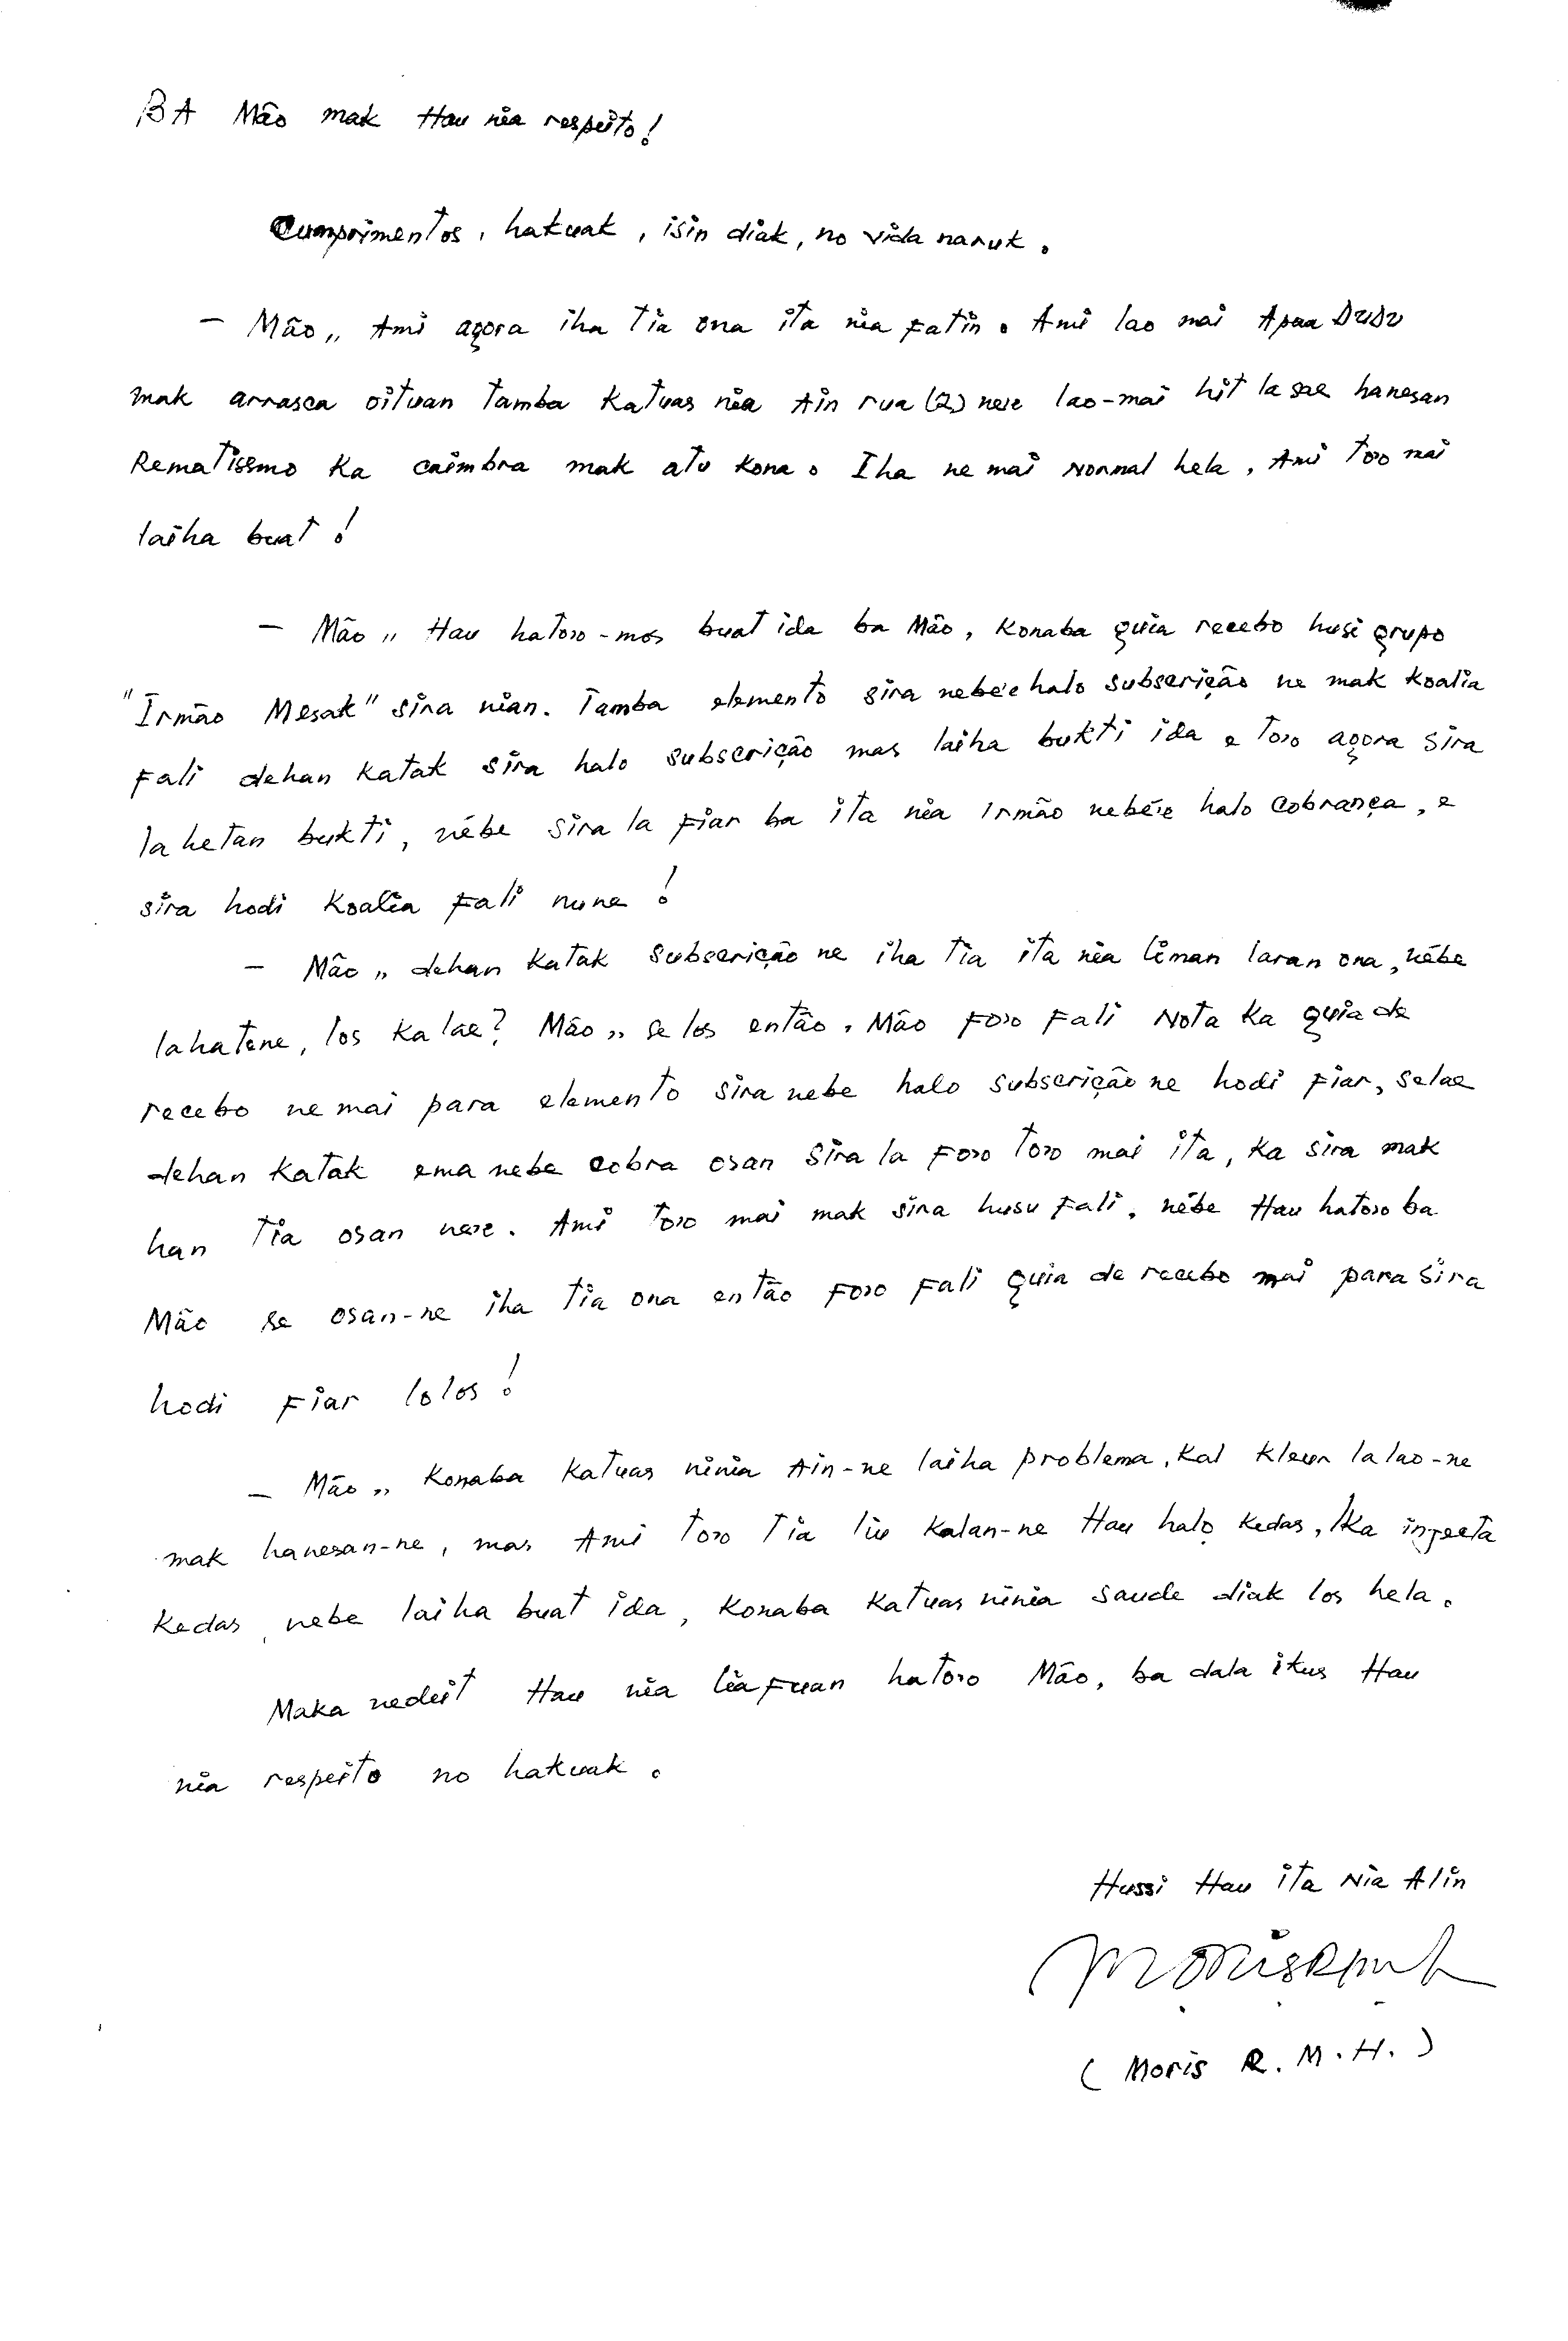 BA Mão mak Hau nia respeito!
Cumprimentos, hakuak, isin diak, no vida naruk.
- Mão,, Ami agora iha tia ona ita nia fatin. Ami lao mai Apaa DUDU
mak arrasca oituan tamba Katuas nia Ain rua (2) nee lao-mai hit la sae hanesan
Rematissmo Ka caimbra mak atu kona. Iha ne mai Normal hela, Ami too mai
laiha buat!
- Mão,, Hau hatoo-mos buat ida ba Mão, Konaba guia recebo husi grupo
"Irmão Mesak" sira nian. Tamba elemento sira nebée halo subscrição ne mak koalia
Fali dehan katak sira halo subscrição mas laiha bukti ida e too agora sira
la hetan bukti, nébe sira la Fiar ba ita nia Irmão nebée halo cobrança, e
sira hodi Koalia Fali nune!
- Mão,, dehan Katak subscrição ne iha tia ita nia liman laran ona, nébe
lahatene, los ka lae? Mão,, se los então, Mão Foo Fali Nota Ka guia de
recebo ne mai para elemento sira nebe halo subscrição ne hodi Fiar, selae
dehan Katak ema nebe cobra osan sira la Foo too mai ita, Ka sira mak
han tia osan nee. Ami too mai mak sira husu Fali, nébe Hau hatoo ba
Mão se osan-ne iha tia ona então Foo Fali guia de recebo mai para sira
hodi Fiar lolos!
- Mão,, Konaba Katuas ninia Ain-ne laiha problema, Kal kleur la lao-ne
mak hanesan-ne, mas Ami too tia liu kalan-ne Hau halo kedas, Ka injecta
Kedas, nebe laiha buat ida, Konaba Katuas ninia saude diak los hela.
Maka nedeit Hau nia lia Fuan hatoo Mão, ba dala ikus Hau
nia respeito no hakuak.
Hussi Hau ita Nia Alin
(Moris R.M.H.)